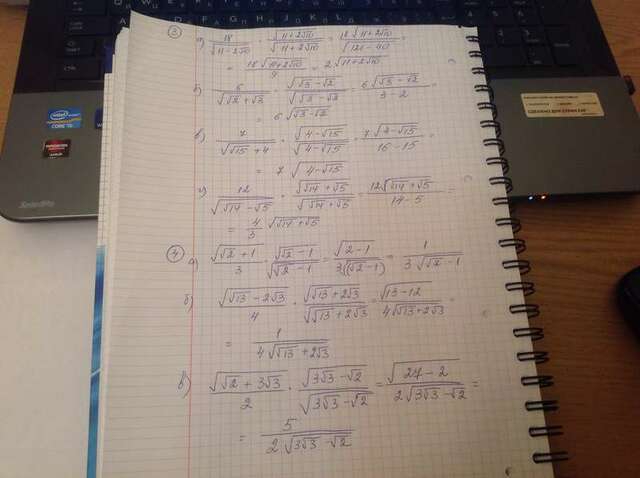 ③ а) 18/√(11-2√10) · √(11+2√10)/√(11+2√10) = 18√(11+2√10)/√(121-40) =
= 18√(11+2√10)/9 = 2√(11+2√10)
б) 6/√(√2+√3) · √(√3-√2)/√(√3-√2) = 6√(√3-√2)/(3-2) =
= 6√(√3-√2)
в) 7/√(√15+4) · √(4-√15)/√(4-√15) = 7√(4-√15)/(16-15) =
= 7√(4-√15)
г) 12/√(√14-√5) · √(√14+√5)/√(√14+√5) = 12√(√14+√5)/(14-5) =
= 4/3 √(√14+√5)
④ а) √(√2+1)/3 · √(√2-1)/√(√2-1) = √(2-1)/(3√(√2-1)) = 1/(3√(√2-1))
б) √(√13-2√3)/4 · √(√13+2√3)/√(√13+2√3) = √(13-12)/(4√(√13+2√3)) =
= 1/(4√(√13+2√3))
в) √(√2+3√3)/2 · √(3√3-√2)/√(3√3-√2) = √(27-2)/(2√(3√3-√2)) =
= 5/(2√(3√3-√2))
intel
CORE i5
AMD